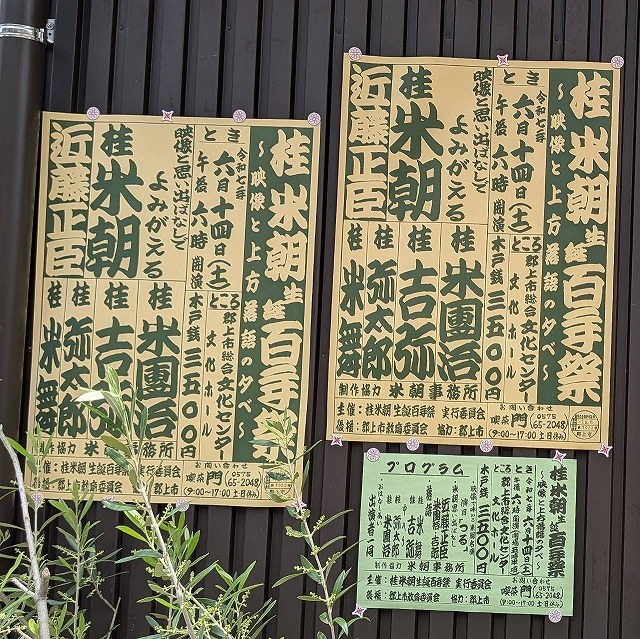 桂米朝生誕百年祭
〜映像と上方落語の夕べ〜
とき
令和七年
六月十四日(土)
午后六時開演
ところ
郡上市総合文化センター
文化ホール
木戸銭三五〇〇円
映像と思い出ばなしで
よみがえる
桂米朝
近藤正臣
桂米團治
桂吉弥
桂弥太郎
桂米舞
制作協力 米朝事務所
主催:桂米朝生誕百年祭 実行委員会
後援:郡上市教育委員会 協力:郡上市
お問い合わせ
喫茶 門 0575(65-2048)
(9:00〜17:00 土日休み)
桂米朝生誕百年祭
〜映像と上方落語の夕べ〜
とき
令和七年
六月十四日(土)
午后六時開演
ところ
郡上市総合文化センター
文化ホール
木戸銭三五〇〇円
映像と思い出ばなしで
よみがえる
桂米朝
近藤正臣
桂米團治
桂吉弥
桂弥太郎
桂米舞
制作協力 米朝事務所
主催:桂米朝生誕百年祭 実行委員会
後援:郡上市教育委員会 協力:郡上市
お問い合わせ
喫茶 門 0575(65-2048)
(9:00〜17:00 土日休み)
プログラム
桂米朝生誕百年祭
〜映像と上方落語の夕べ〜
とき 令和七年六月十四日(土)
ところ 郡上市総合文化センター
文化ホール
木戸銭三五〇〇円
近藤正臣
桂米團治
桂吉弥
桂弥太郎
桂米舞
出演者一同
制作協力 米朝事務所
主催:桂米朝生誕百年祭 実行委員会
後援:郡上市教育委員会 協力:郡上市
お問い合わせ
喫茶 門 0575(65-2048)
(9:00〜17:00 土日休み)